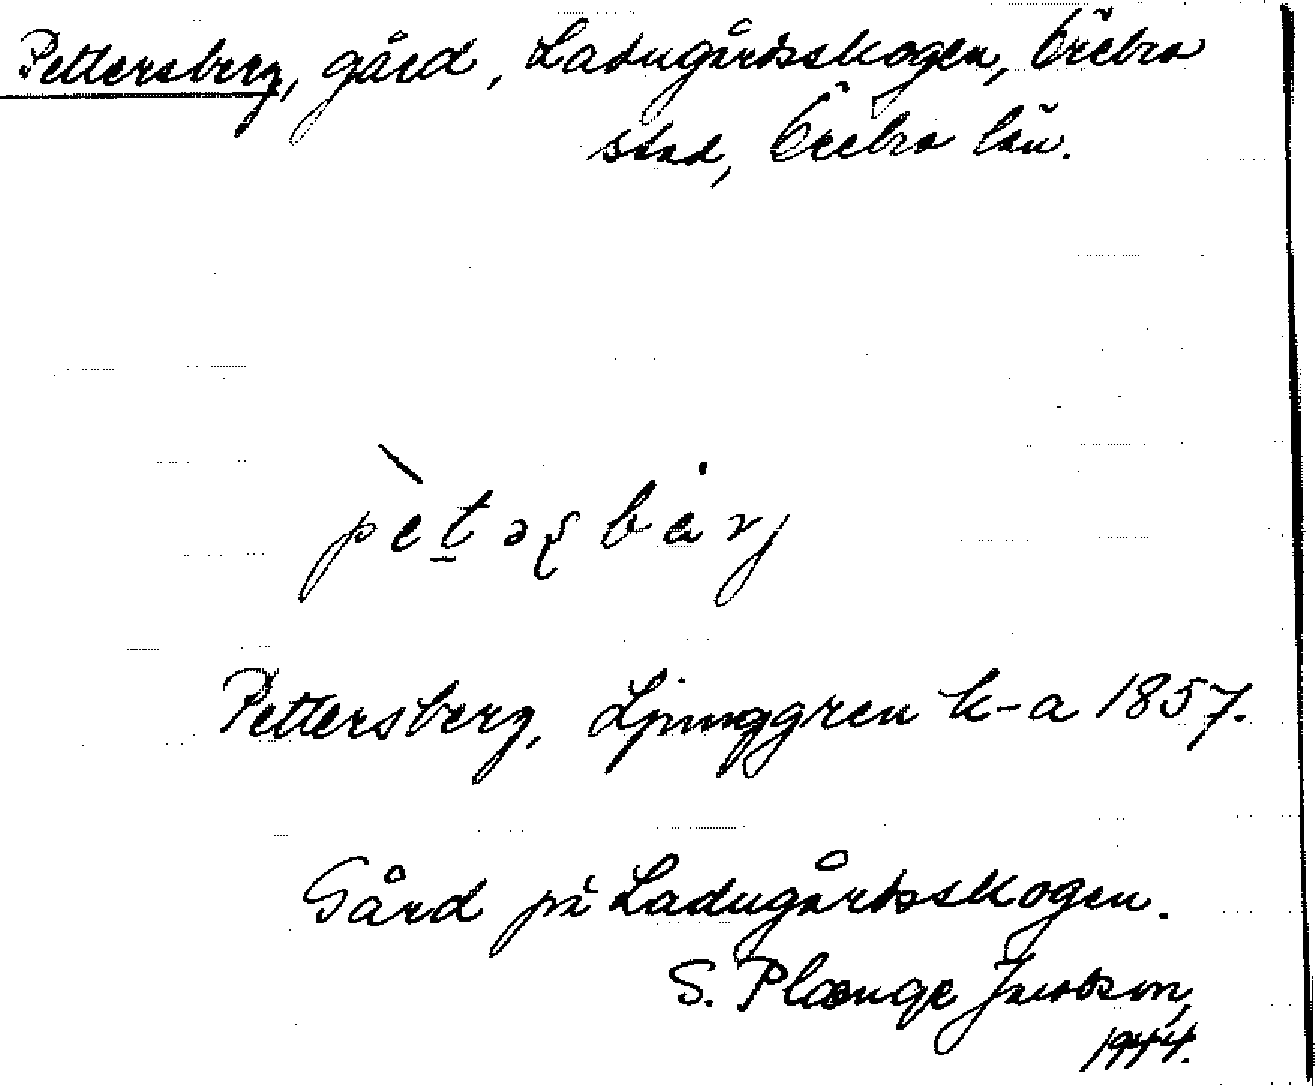 Pettersberg, gård, Ladugårdsskogen, Örebro
stad, Örebro län.
pèt̲əʂbàrj
Pettersberg, Ljunggren k-a 1857.
Gård på Ladugårdsskogen.
S. Plænge Jacobson,
1944.